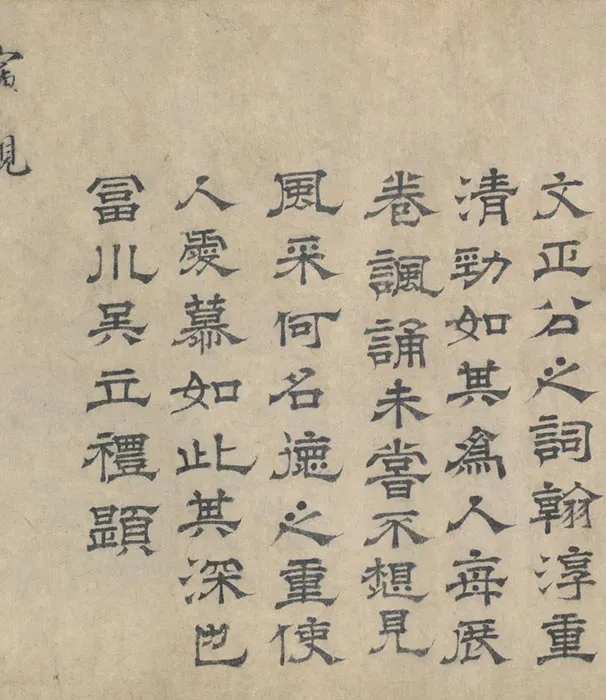 文正公之詞翰淳重
清勁如其爲人每展
卷諷誦未嘗不想見
風采何名德之重使
人愛慕如此其深也
冨川吳立禮題